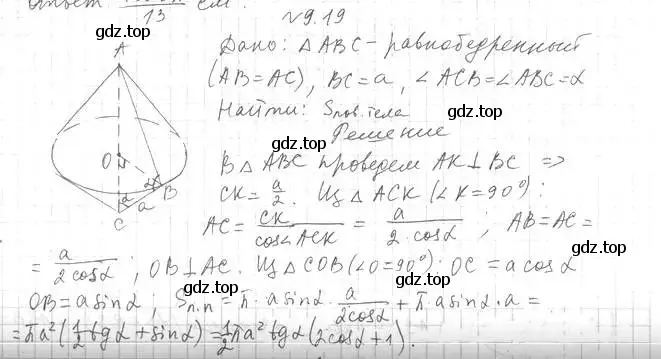 Ответ 13 см.
N9.19
Дано: △ABC - равнобедренный
(AB=AC), BC=a, ∠ACB=∠ABC=α
gdz.top
Найти: Sпов.тела
gdz.top
Решение
В △ABC проведем AK⊥BC =>
CK = a/2. Из △ACK (∠K=90°):
AC = CK/cos∠ACK = a/(2·cosα); AB=AC=
= a/(2cosα); OB⊥AC. Из △COB (∠O=90°): OC = a cosα
OB = a sinα; Sп.п = π·a sinα·a/(2cosα) + π a sinα·a =
= πa²(1/2 tgα + sinα) = 1/2 πa² tgα(2cosα+1).
A
O
B
C
α
α
a
gdz.top
gdz.top
gdz.top
gdz.top
gdz.top
gdz.top
gdz.top